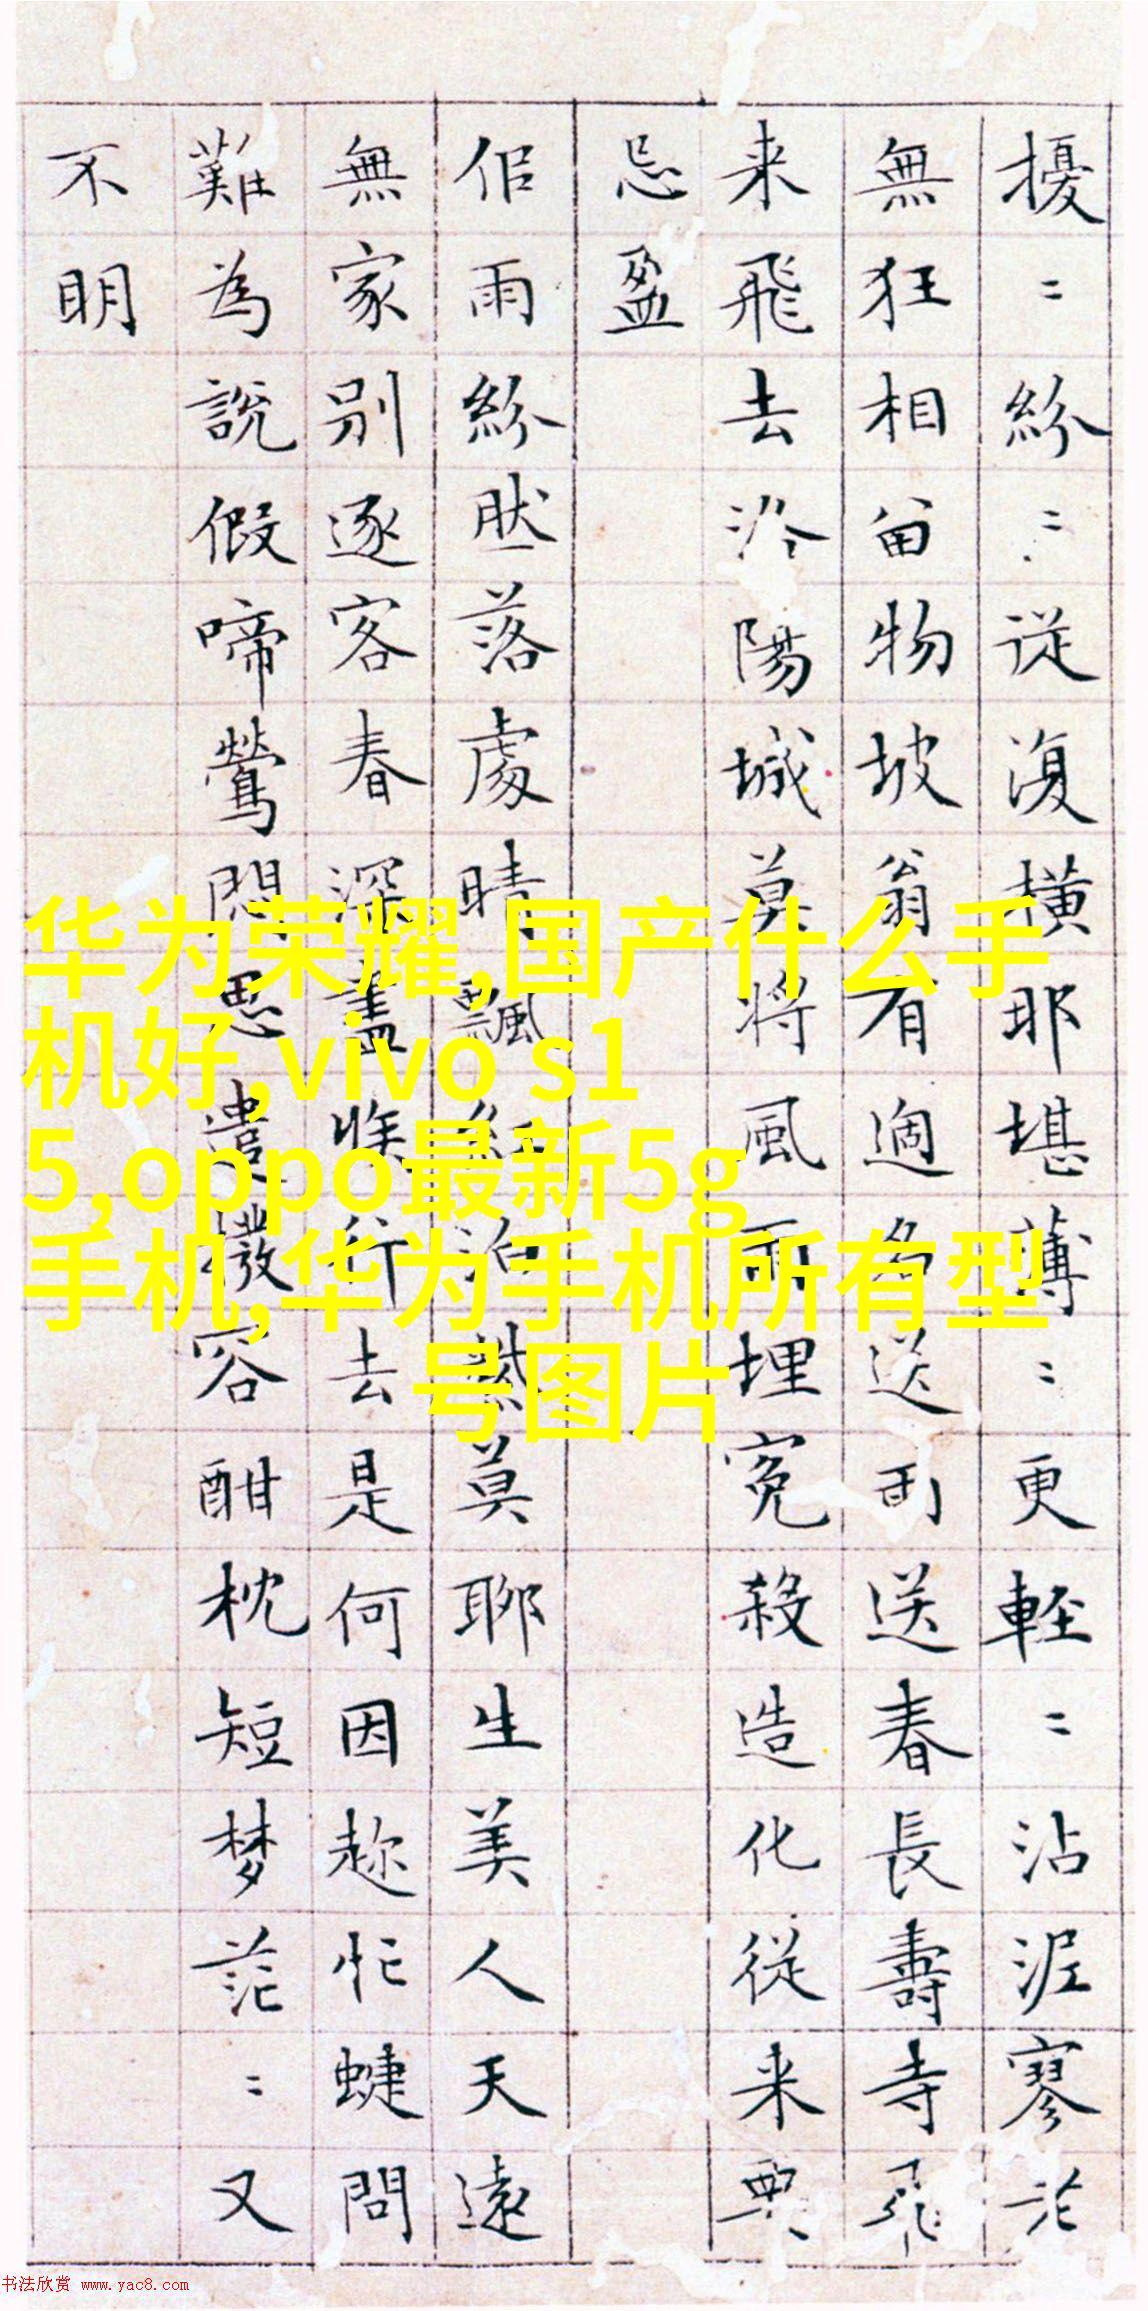 擾〻紛〻從復橫耶堪薄〻更輕〻沾泥寥
無狂相留物坡翁有送送春長壽寺飛
来飛去洛陽城莫將風雨埋冤殺造化從来要
忌盈
佀雨紛然落處晴飄紅泊紫莫聊生美人天遠
無家別逐客春深盡族行去是何因趂忙蜨問
難為說假啼鶯悶思遣撥容酣枕短梦茫〻又
不明
华为荣耀,国产什么手
机好,vivo s1
5,oppo最新5g
手机,华为手机所有型
号图片
书法欣赏 www.yac8.com